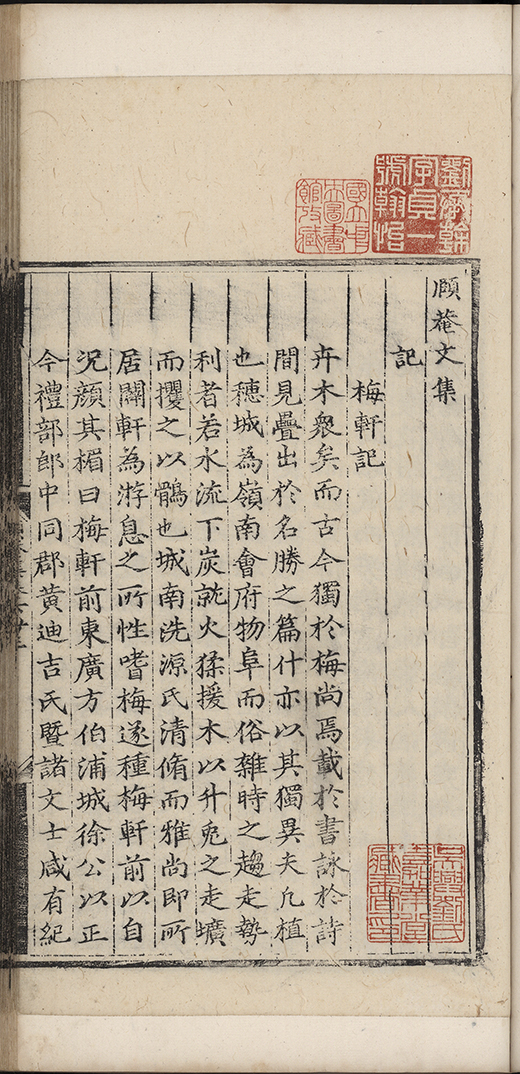 劉承幹
字貞一
號翰怡
國立中
央圖書
館收藏
頤菴文集
記
梅軒記
卉木衆矣而古今獨於梅尚焉載於書詠於詩
間見疊出於名勝之篇什亦以其獨異夫凡植
也穗城為嶺南會府物阜而俗雜時之趨走勢
利者若水流下炭就火猱援木以升兎之走壙
而攫之以鶻也城南洗源氏清脩而雅尚即所
居闢軒為游息之所性嗜梅遂種梅軒前以自
况顔其楣曰梅軒前東廣方伯浦城徐公以正
今禮部郎中同郡黄迪吉氏暨諸文士咸有紀
吳興劉氏
嘉業堂
藏書印